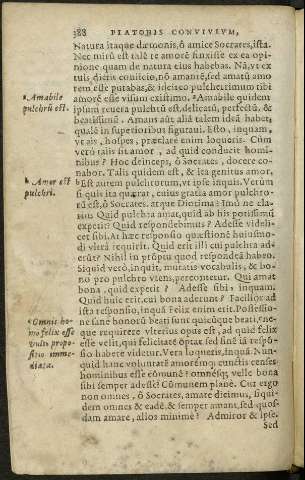 388 PLATONIS CONVIVIVM,
Natura itaque dæmonis, ô amice Socrates, ista.
Nec mirũ est talẽ te amorẽ finxisse ex ea opi-
nione quam de natura eius habebas. Nã, vt ex
tuis dictis coniicio, nõ amantẽ, sed amatũ amo
rem esse putabas, & idcirco pulcherrimum tibi
amorẽ esse visum existimo. Amabile quidem
ipsum reuera pulchrũ est, delicatũ, perfectũ, &
beatissimũ. Amans aũt aliã talem ideã habet,
qualẽ in superioribus figuraui. Esto, inquam,
vt ais, hospes, præclare enim loqueris. Cùm
verò talis sit amor, ad quid conducit homi-
nibus? Hoc deinceps, ô Socrates, docere co-
nabor. Talis quidem est, & ita genitus amor,
Est autem pulchrorum, vt ipse inquis. Verùm
si quis ita quærat, cuius gratia amor pulchro-
rũ est, ô Socrates, atque Diotima? Imò ne cla-
rius: Quid pulchra amat, quid ab his potissimũ
expetit? Quid respondebimus? Adesse videli-
cet sibi. At hæc responsio quæstionẽ huiusmo-
di vltrà requirit. Quid erit illi cui pulchra ad-
erũt? Nihil in prõptu quod respondeã habeo.
Siquid verò, inquit, mutatis vocabulis, & bo-
no pro pulchro vtens, percontetur. Qui amat
bona, quid expetit? Adesse sibi, inquam.
Quid huic erit, cui bona aderunt? Facilior ad
ista responsio, inquã Felix enim erit. Possessio-
ne sanè bonorũ beati sunt quicũque beati, ne-
que requirere vlterius opus est, ad quid felix
esse velit, qui felicitatẽ optat, sed finẽ iã respõ-
sio habere videtur. Vera loqueris, inquã. Nun-
quid hanc voluntatẽ amorẽmq; cunctis censes
hominibus esse cõmunẽ? omnésq; velle bona
sibi semper adesse? Cõmunem planè. Cur ergo
non omnes, ô Socrates, amare dicimus, siqui-
dem omnes & eadẽ, & semper amant, sed quos-
dam amare, alios minimè? Admiror & ipse.
Sed
Amabile
pulchrũ est.
Amor est
pulchri.
Omnis ho-
mo felix esse
vult: propo-
sitio imme-
diata.